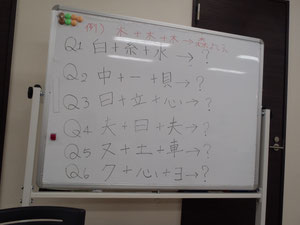 例) 木+木+木→森
Q1 白+糸+水→?
Q2 中+一+貝→?
Q3 日+立+心→?
Q4 夫+日+夫→?
Q5 ヌ+土+車→?
Q6 ク+心+ヨ→?